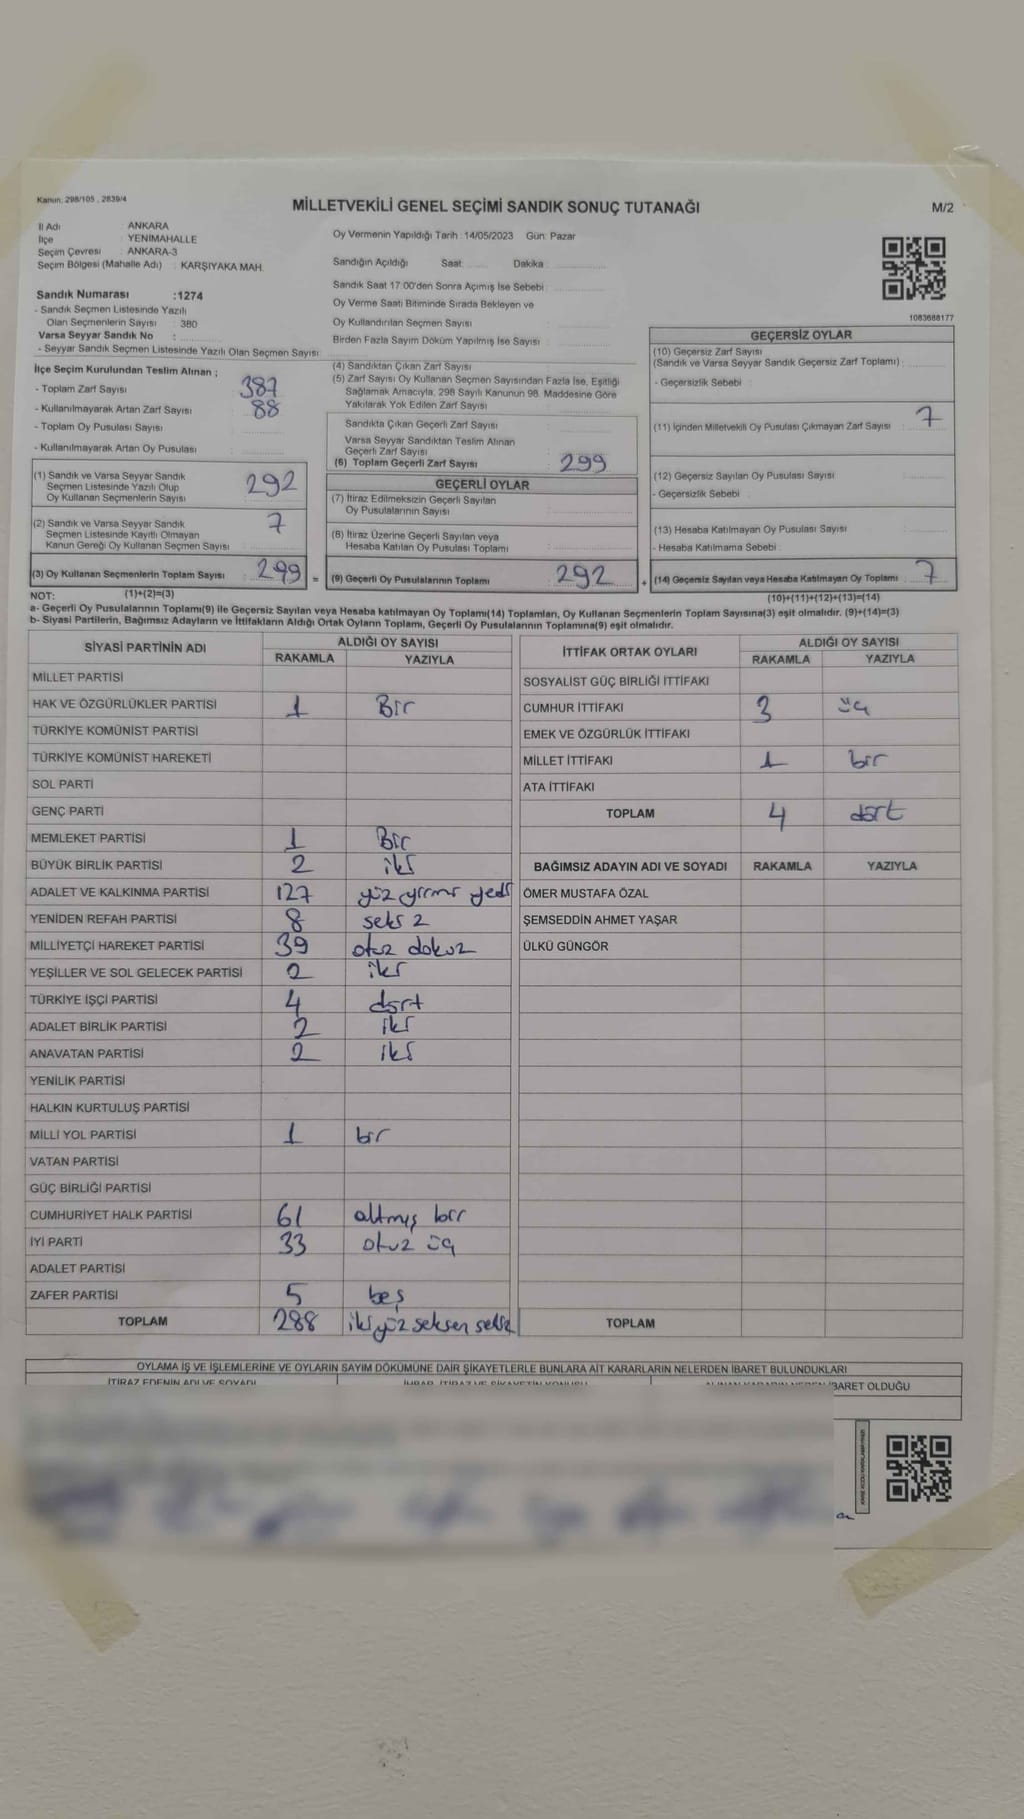 Kanun, 298/105 , 2839/4
MİLLETVEKİLİ GENEL SEÇİMİ SANDIK SONUÇ TUTANAĞI
M/2
İl Adı : ANKARA
İlçe : YENİMAHALLE
Seçim Çevresi : ANKARA-3
Seçim Bölgesi (Mahalle Adı) : KARŞIYAKA MAH.
Sandık Numarası :1274
- Sandık Seçmen Listesinde Yazılı
Olan Seçmenlerin Sayısı : 380
Varsa Seyyar Sandık No :
- Seyyar Sandık Seçmen Listesinde Yazılı Olan Seçmen Sayısı:
Oy Vermenin Yapıldığı Tarih :14/05/2023 Gün: Pazar
Sandığın Açıldığı Saat: Dakika :
Sandık Saat 17:00'den Sonra Açımış İse Sebebi :
Oy Verme Saati Bitiminde Sırada Bekleyen ve
Oy Kullandırılan Seçmen Sayısı :
Birden Fazla Sayım Döküm Yapılmış İse Sayısı :
1083688177
İlçe Seçim Kurulundan Teslim Alınan ;
- Toplam Zarf Sayısı : 387
- Kullanılmayarak Artan Zarf Sayısı : 88
- Toplam Oy Pusulası Sayısı :
- Kullanılmayarak Artan Oy Pusulası :
(1) Sandık ve Varsa Seyyar Sandık
Seçmen Listesinde Yazılı Olup
Oy Kullanan Seçmenlerin Sayısı : 292
(2) Sandık ve Varsa Seyyar Sandık
Seçmen Listesinde Kayıtlı Olmayan
Kanun Gereği Oy Kullanan Seçmen Sayısı : 7
(3) Oy Kullanan Seçmenlerin Toplam Sayısı : 299 =
(4) Sandıktan Çıkan Zarf Sayısı :
(5) Zarf Sayısı Oy Kullanan Seçmen Sayısından Fazla İse, Eşitliği
Sağlamak Amacıyla, 298 Sayılı Kanunun 98. Maddesine Göre
Yakılarak Yok Edilen Zarf Sayısı :
Sandıkta Çıkan Geçerli Zarf Sayısı :
Varsa Seyyar Sandıktan Teslim Alınan
Geçerli Zarf Sayısı :
(6) Toplam Geçerli Zarf Sayısı : 299
GEÇERLİ OYLAR
(7) İtiraz Edilmeksizin Geçerli Sayılan
Oy Pusulalarının Sayısı :
(8) İtiraz Üzerine Geçerli Sayılan veya
Hesaba Katılan Oy Pusulası Toplamı :
(9) Geçerli Oy Pusulalarının Toplamı : 292 +
GEÇERSİZ OYLAR
(10) Geçersiz Zarf Sayısı
(Sandık ve Varsa Seyyar Sandık Geçersiz Zarf Toplamı) :
- Geçersizlik Sebebi :
(11) İçinden Milletvekili Oy Pusulası Çıkmayan Zarf Sayısı : 7
(12) Geçersiz Sayılan Oy Pusulası Sayısı :
- Geçersizlik Sebebi :
(13) Hesaba Katılmayan Oy Pusulası Sayısı :
- Hesaba Katılmama Sebebi :
(14) Geçersiz Sayılan veya Hesaba Katılmayan Oy Toplamı : 7
NOT: (1)+(2)=(3) (10)+(11)+(12)+(13)=(14)
a- Geçerli Oy Pusulalarının Toplamı(9) ile Geçersiz Sayılan veya Hesaba katılmayan Oy Toplamı(14) Toplamları, Oy Kullanan Seçmenlerin Toplam Sayısına(3) eşit olmalıdır. (9)+(14)=(3)
b- Siyasi Partilerin, Bağımsız Adayların ve İttifakların Aldığı Ortak Oyların Toplamı, Geçerli Oy Pusulalarının Toplamına(9) eşit olmalıdır.
SİYASİ PARTİNİN ADI ALDIĞI OY SAYISI
RAKAMLA YAZIYLA
MİLLET PARTİSİ
HAK VE ÖZGÜRLÜKLER PARTİSİ 1 Bir
TÜRKİYE KOMÜNİST PARTİSİ
TÜRKİYE KOMÜNİST HAREKETİ
SOL PARTİ
GENÇ PARTİ
MEMLEKET PARTİSİ 1 Bir
BÜYÜK BİRLİK PARTİSİ 2 iki
ADALET VE KALKINMA PARTİSİ 127 yüz yirmi yedi
YENİDEN REFAH PARTİSİ 8 seki z
MİLLİYETÇİ HAREKET PARTİSİ 39 otuz dokuz
YEŞİLLER VE SOL GELECEK PARTİSİ 2 iki
TÜRKİYE İŞÇİ PARTİSİ 4 dört
ADALET BİRLİK PARTİSİ 2 iki
ANAVATAN PARTİSİ 2 iki
YENİLİK PARTİSİ
HALKIN KURTULUŞ PARTİSİ
MİLLİ YOL PARTİSİ 1 bir
VATAN PARTİSİ
GÜÇ BİRLİĞİ PARTİSİ
CUMHURİYET HALK PARTİSİ 61 altmış bir
İYİ PARTİ 33 otuz üç
ADALET PARTİSİ
ZAFER PARTİSİ 5 beş
TOPLAM 288 iki yüz seksen sekiz
İTTİFAK ORTAK OYLARI ALDIĞI OY SAYISI
RAKAMLA YAZIYLA
SOSYALİST GÜÇ BİRLİĞİ İTTİFAKI
CUMHUR İTTİFAKI 3 üç
EMEK VE ÖZGÜRLÜK İTTİFAKI
MİLLET İTTİFAKI 1 bir
ATA İTTİFAKI
TOPLAM 4 dört
BAĞIMSIZ ADAYIN ADI VE SOYADI RAKAMLA YAZIYLA
ÖMER MUSTAFA ÖZAL
ŞEMSEDDİN AHMET YAŞAR
ÜLKÜ GÜNGÖR
TOPLAM
OYLAMA İŞ VE İŞLEMLERİNE VE OYLARIN SAYIM DÖKÜMÜNE DAİR ŞİKAYETLERLE BUNLARA AİT KARARLARIN NELERDEN İBARET BULUNDUKLARI
İTİRAZ EDENİN ADI VE SOYADI
İBARET OLDUĞU